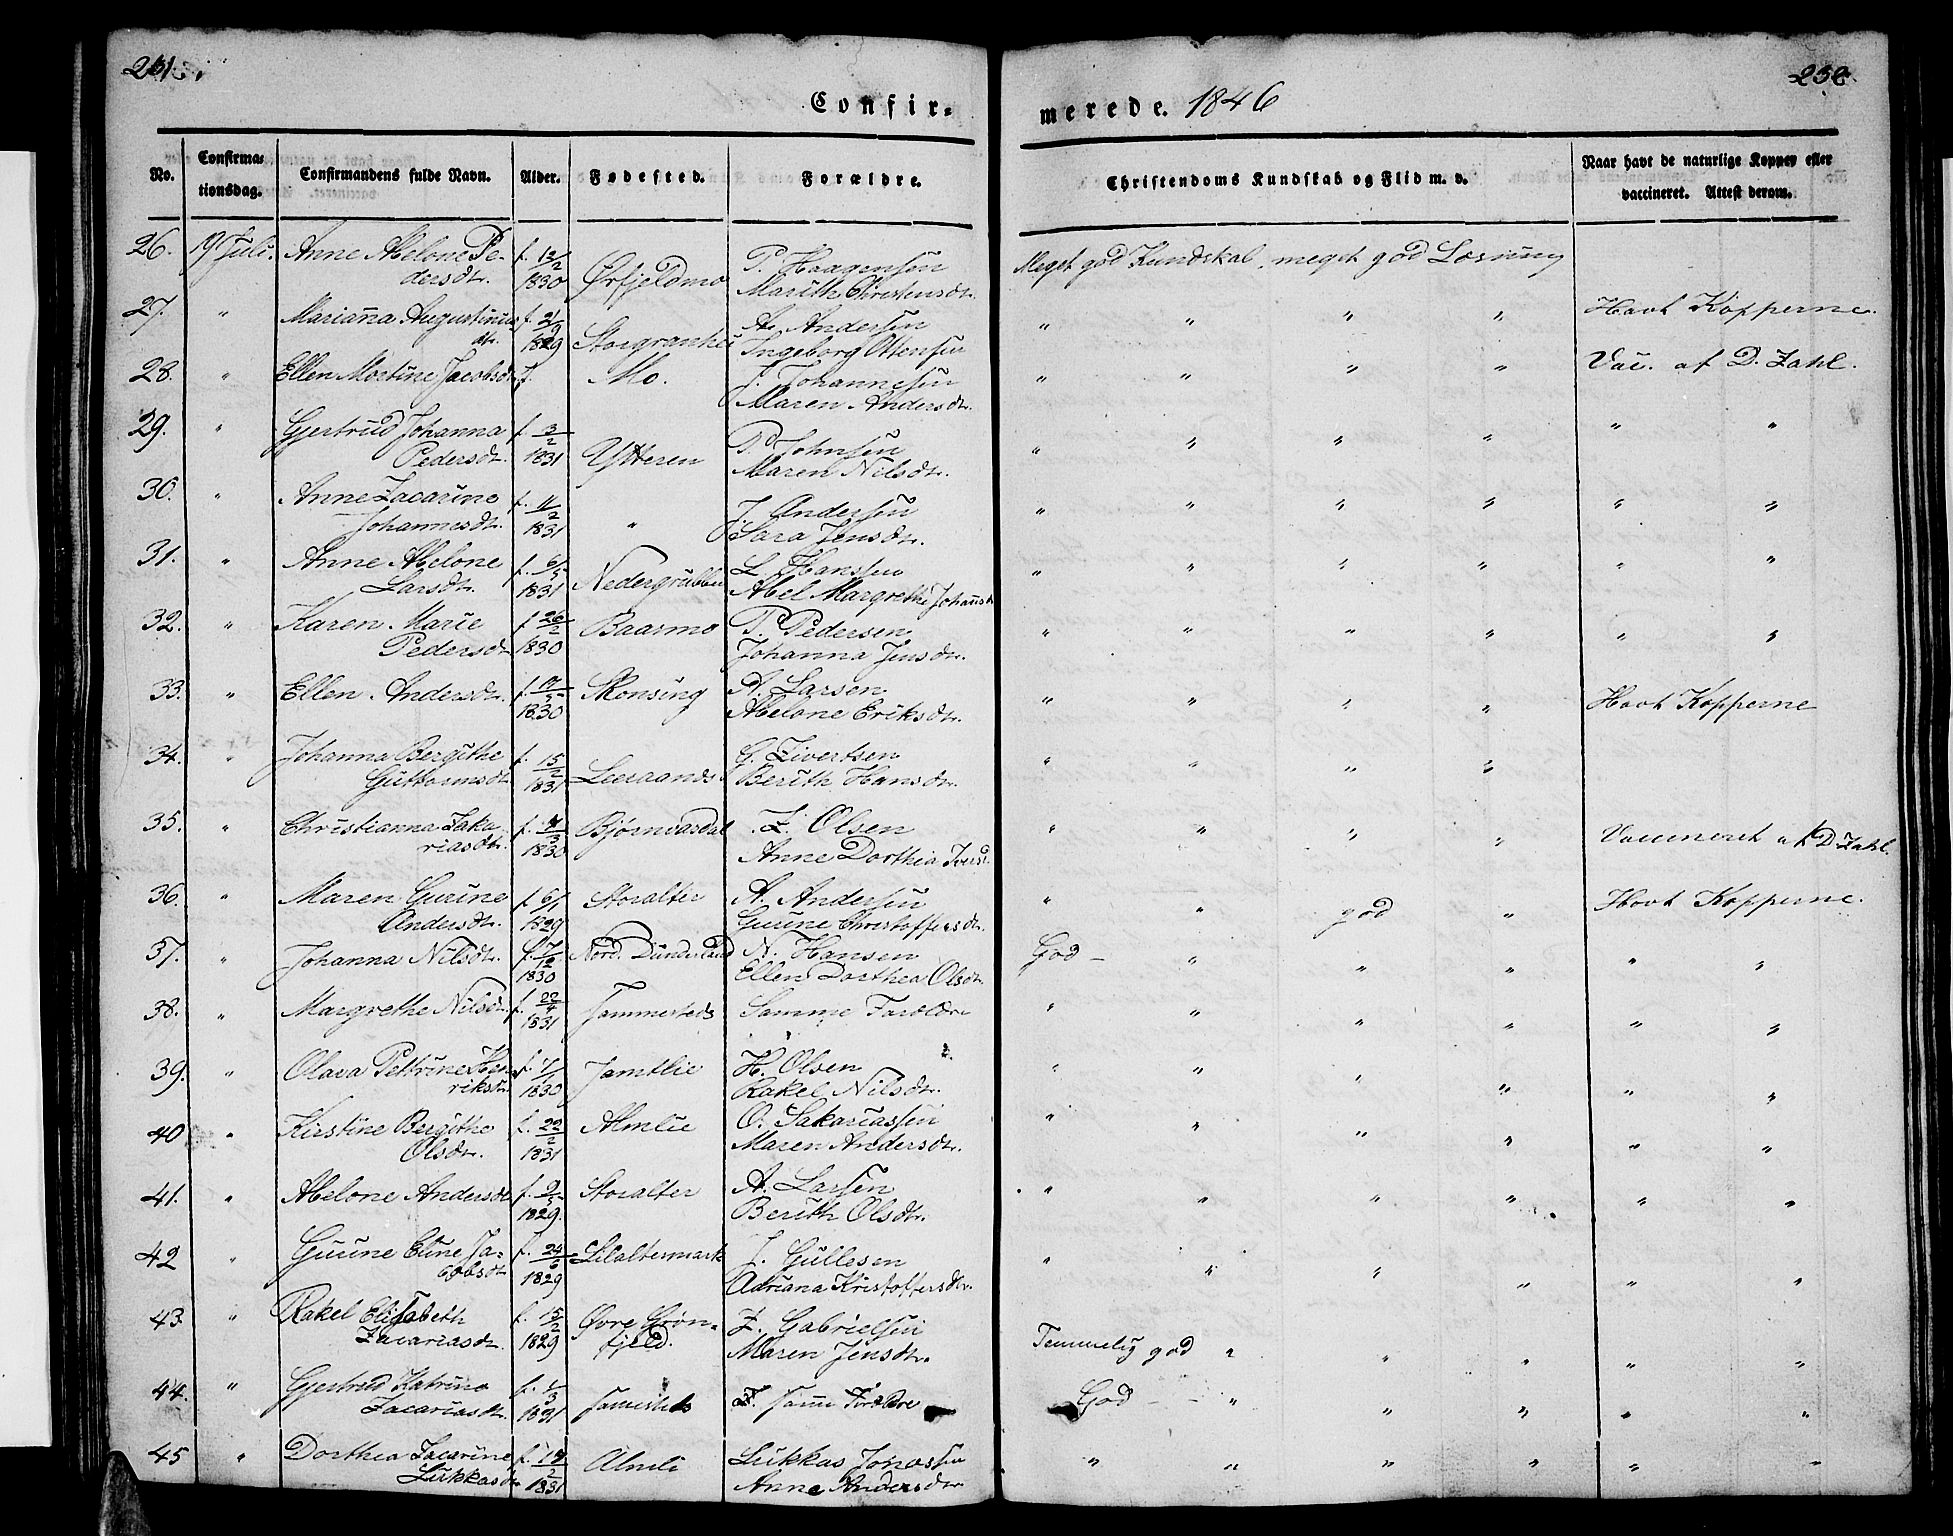 231.
232.
Confir-
merede. 1846
No.
Confirma-
tionsdag.
Confirmandens fulde Navn.
Alder.
Fødested.
Forældre.
Christendoms Kundskab og Flid m. v.
Naar havt de naturlige Kopper eller
vaccineret. Attest derom.
26. 19 Juli. Anne Abelone Pe-
dersdtr. f. 12/2 1830 Ørfjeldmo P. Haagensen
Marith Christensdtr. Meget god Kundskab, meget god Læsning
27. " Marianna Augustinus
dtr. f. 2/9 1829 A. Andersen
Ingeborg Ottensen " " " " Havt Kopperne.
28. " Ellen Mortine Jacobsdtr. f. Mo. J. Johannesen
Maren Andersdtr. " " " " Vac. af D. Zahl.
29. " Gjertrud Johanna
Pedersdtr. f. 3/2 1831 Ytteren P. Johnsen
Maren Nilsdtr. " " " " " "
30. " Anne Zacarine
Johannesdtr. f. 11/2 1831 " J. Andersen
Sara Jensdtr. " " " " " "
31. " Anne Abelone
Larsdtr. f. 6/5 1831 L. Hanssen
Abel Margrethe " " " " " "
32. " Karen Marie
Pedersdtr. f. 26/2 1830 Baasmo P. Pedersen
Johanna Jensdtr. " " " " " "
33. " Ellen Andersdtr. 1830 Skonsing A. Larsen
Abelone Eriksdtr. " " " " Havt Kopperne
34. " Johanna Bergithe
Guttormsdtr. f. 15/2 1831 G. Zivertsen
Berith Hansdtr. " " " "
35. " Christianna Zaka
riasdtr. 1830 Bjørnvasdal Z. Olsen
Anne Dorthia " " " " Vaccineret af D. Zahl.
36. " Maren Gurine
Andersdtr. f. 6/1 1829 Storalter A. Andersen
Gurine Christoffersdtr. " " god " Havt Kopperne.
37. " Johanna Nilsdtr. f. 17/12 1830 Nord. Dunderland N. Hansen
Ellen Dorthea Olsdtr. God - " " " " "
38. " Margrethe Nilsdtr. f. 22/4 1831 Sammesteds Samme Foroldre " " " " " "
39. " Olava Pettrine Hen
riksdtr. 1830 Jamtlie H. Olsen
Rakel Nilsdtr. " " " " " "
40 " Kirstine Bergithe
Olsdtr. f. 22/2 1831 Almlie O. Sakariassen
Maren Andersdtr. " " " " " "
41. " Abelone Andersdtr. f. 9/5 1829. Storalter A. Larsen
Berith Olsdtr. " " " " " "
42 " Gurine Ja-
cobsdtr. f. 24/6 1829 Lilaltermark J. Gullesen
Adriana Kristoffersdtr. " " " " " "
43. " Rakel Elisabeth
Zacariasdtr. f. 15/2 1829 Øvre Grøn-
fjeld. Z. Gabrielsen
Maren Jensdtr. Temmelig god " " " " "
44. " Gjertrud Katrina
Zacariasdtr. f. 1/3 1831 Samesteds Samm Foroldre God - - " " " " "
45 " Dorthea Zacarine
Lukkasdtr. 1831 Almli Lukkas Jonassen
Anne Andersdtr. " " " " " "